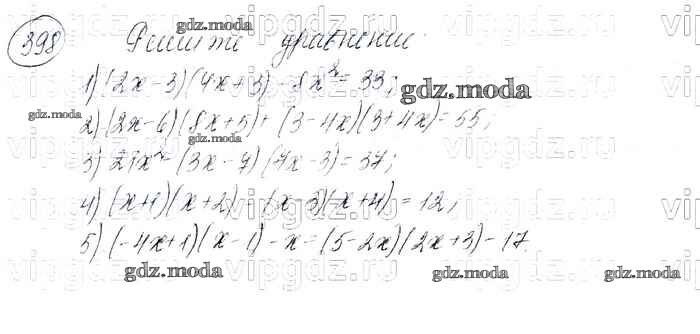 398 Решите уравнение:
1) (2x-3)(4x+3) - 8x² = 33;
2) (2x-6)(8x+5) + (3-4x)(3+4x) = 55;
3) 21x² - (3x-7)(7x-3) = 37;
4) (x+1)(x+2) - (x-3)(x+4) = 12;
5) (-4x+1)(x-1) - x = (5-2x)(2x+3) - 17
gdz.moda
gdz.moda
gdz.moda
gdz.moda
gdz.moda
gdz.moda
gdz.moda
vipgdz.ru
vipgdz.ru
vipgdz.ru
vipgdz.ru